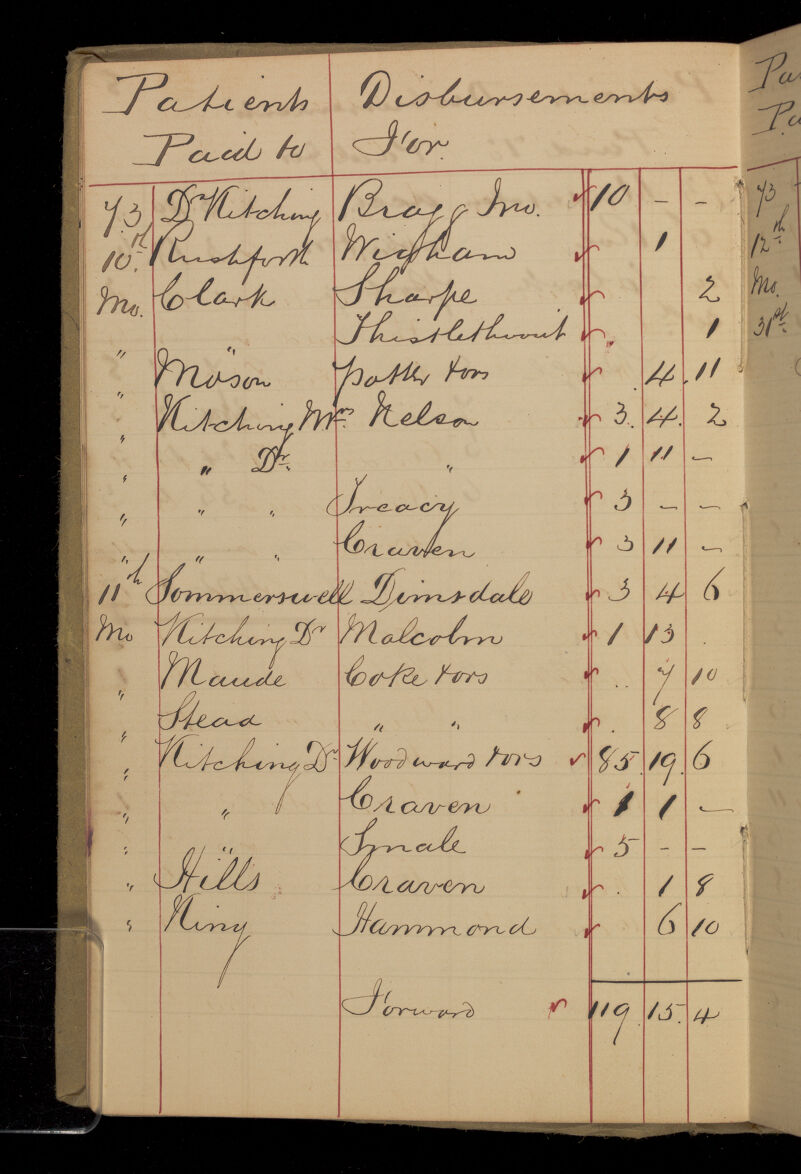 Patients Disbursements
Paid to For
73 Dr Kitching Bragg Jno. ✓ 10 - -
10th Rushforth Wigham ✓ 1
Mo. Clark Sharpe ✓ 2
" " Thistlethwait ✓ 1
" Mason Potter & ors ✓ 4 11
" Kitching Mrs Nelson ✓ 3 4 2
" " Dr. " ✓ 1 11 -
" " " Treacy ✓ 3 - -
" " " Craven ✓ 3 11 -
11th Sommerswell Dimsdale ✓ 3 4 6
Mo Kitching Dr Malcolm ✓ 1 13
" Maude Coke & ors ✓ 7 10
" Stead " " ✓ 8 8
" Kitching Dr Woodward & ors ✓ 85 19 6
" " Craven ✓ 1 1 -
" " Smale ✓ 5 - -
" Hills Craven ✓ 1 8
" King Hammond ✓ 6 10
Forward ✓ 119 15 4
Pa
Pa
73
12th
Mo.
31st